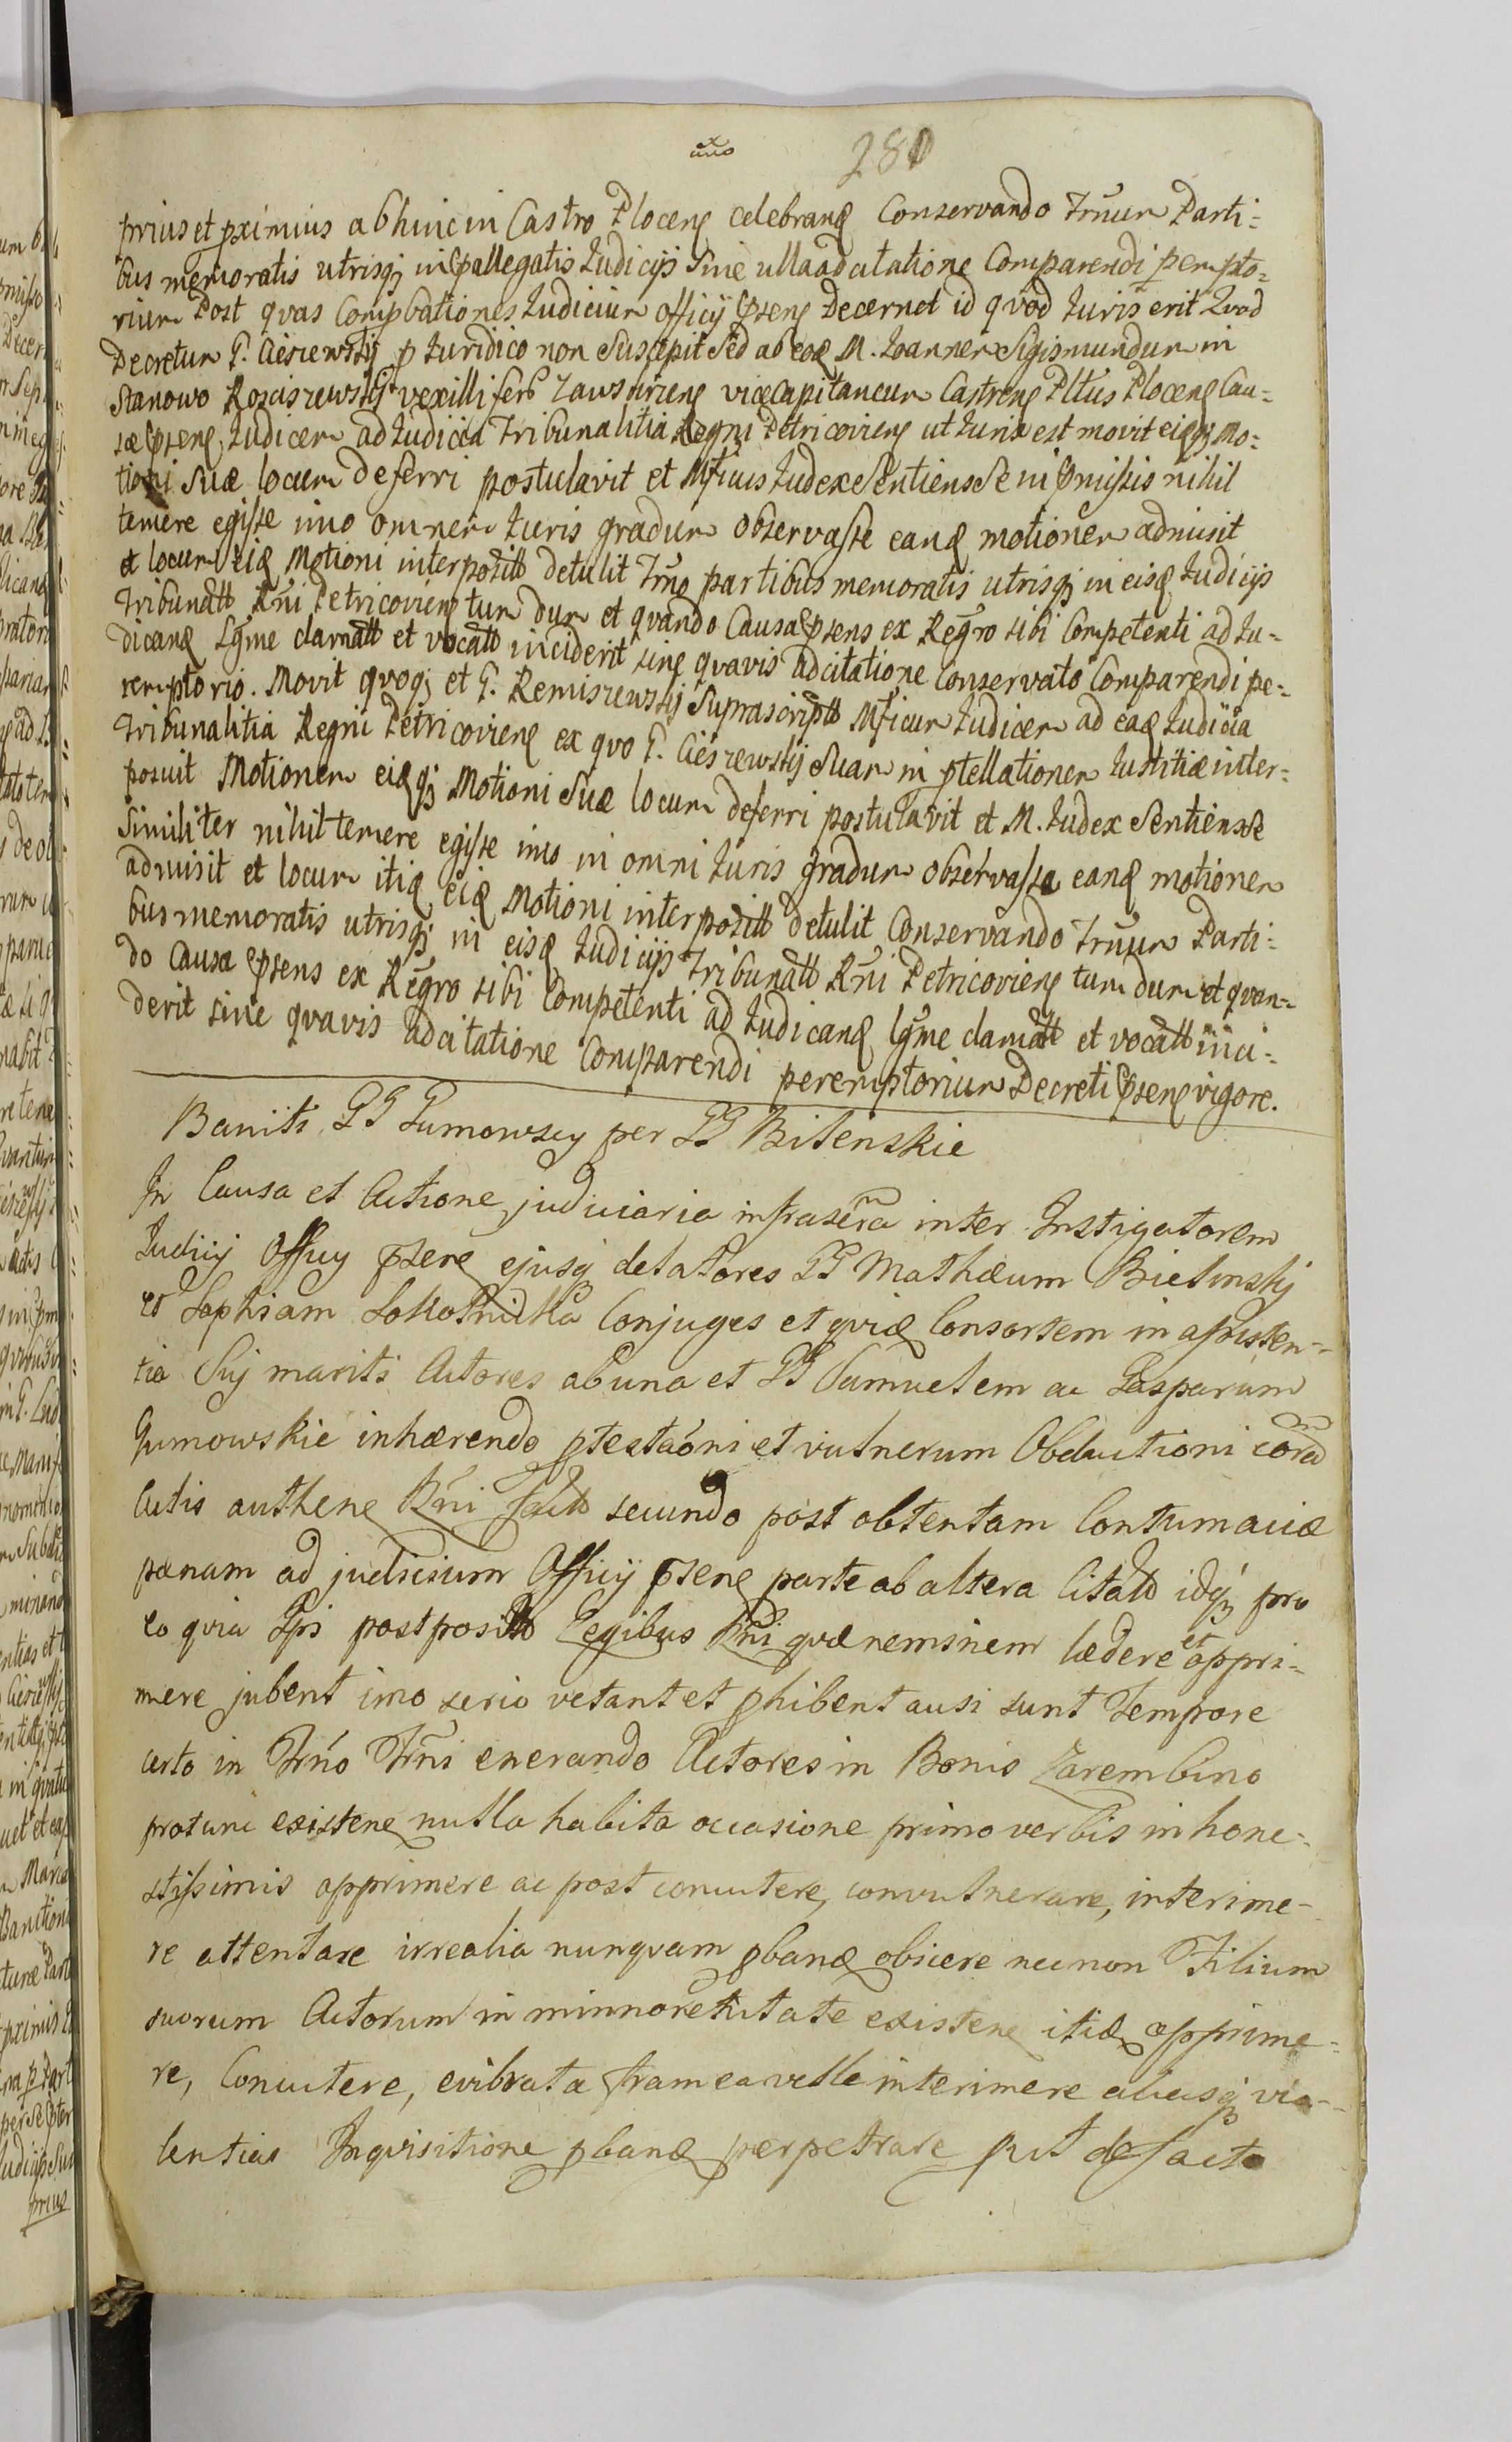 280
prius et pximius abhinc in Castro Plocen celebran Conservando Trnum Parti-
bus memoratis utrisq in pallegatis Judicijs Sine ulla adcitatione Comparendi perempto-
rium Post quas Compbationes Judicium officij psens Decernet id quod Juris erit Quod
Decretum G. Ciesrewskij p Juridico non Suscepit Sed ab eod M. Joannem Sigismundum in
Stanowo Roscisrewskij vexilliferb Zawskrinen vicecapitaneum Castren Pltus Plocen Cau-
sæ psens Judicem ad Judicia Tribunalitia Regni Petricovien ut Juris est movit eiq Mo-
tioni Suæ locum deferri postulavit et Mficus Judex Sentiens Se in pmissis nihil
temere egisse imo omnem Juris gradum observasse eand motionem admisit
et locum eid Motioni interpositt detulit Trno partibus memoratis utrisq in eisd Judicijs
Tribunatt Rni Petricovien tum dum et quando Causa psens ex Regro sibi Competenti ad Ju-
dicand Lgme clamatt et vocatt inciderit sine quavis adcitatione Conservato Comparendi pe-
remptorio. Movit quoq et G. Remisrewskij Suprascriptt Mficum Judicem ad ead Judicia
Tribunalitia Regni Petricovien ex quo G. Ciesrewskij Suam in ptellationem Justitiæ inter-
posuit Motionem eidq Motioni Suæ locum deferri postulavit et M. Judex Sentiens Se
Similiter nihil temere egisse imo in omni Juris gradum observasse eand motionem
admisit et locum itid eid Motioni interpositt detulit Conservando Trnum Parti-
bus memoratis utrisq in eisd Judicijs Tribunatt Rni Petricovien tum dum et quan-
do Causa psens ex Regro sibi Competenti ad Judicand lgme clamatt et vocatt inci-
derit sine quavis adcitatione Comparendi peremptorium Decreti psens vigore.
Baniti GG Gumowscy per GG Bilenskie
In Causa et Actione judiciaria infrascra inter Instigatorem
Judicij Officij psens ejusq delatores GG Mathæum Bielinskj
et Sophiam Conjuges et quid Consortem in assisten-
tia Suj mariti Actores ab una et GG Samuelem ac Gasparum
Gumowskie inhærendo ptestaoni et vulnerum Obductioni corad
Actis authen Rni factt secundo post obtentam Contumaciæ
pænam ad judicium Officij psens parte ab altera Citatt idq pro
eo quia Ipsi postpositt Legibus Rni quæ neminem lædere et oppri-
mere jubent imo serio vetant et phibent ausi sunt Tempore
certo in Trno Trni enerando Actores in Bonis Zarembino
protunc existen nulla habita occasione primo verbis inhone-
stissimis opprimere ac post concutere, convulnerare, interime-
re attentare irrealia nunquam pband obiicere necnon Filium
suorum Actorum in minnoretutate existen itid opprime-
re, Concutere, evibrata framea velle interimere aliasq vio-
lentias Inquisitione pband perpetrare put de facto